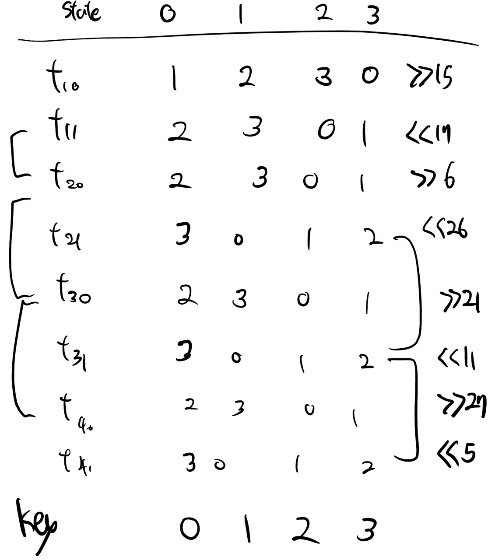 State 0 1 2 3
t10 1 2 3 0 >>15
t11 2 3 0 1 <<17
t20 2 3 0 1 >>6
t21 3 0 1 2 <<26
t30 2 3 0 1 >>21
t31 3 0 1 2 <<11
t40 2 3 0 1 >>27
t41 3 0 1 2 <<5
key 0 1 2 3